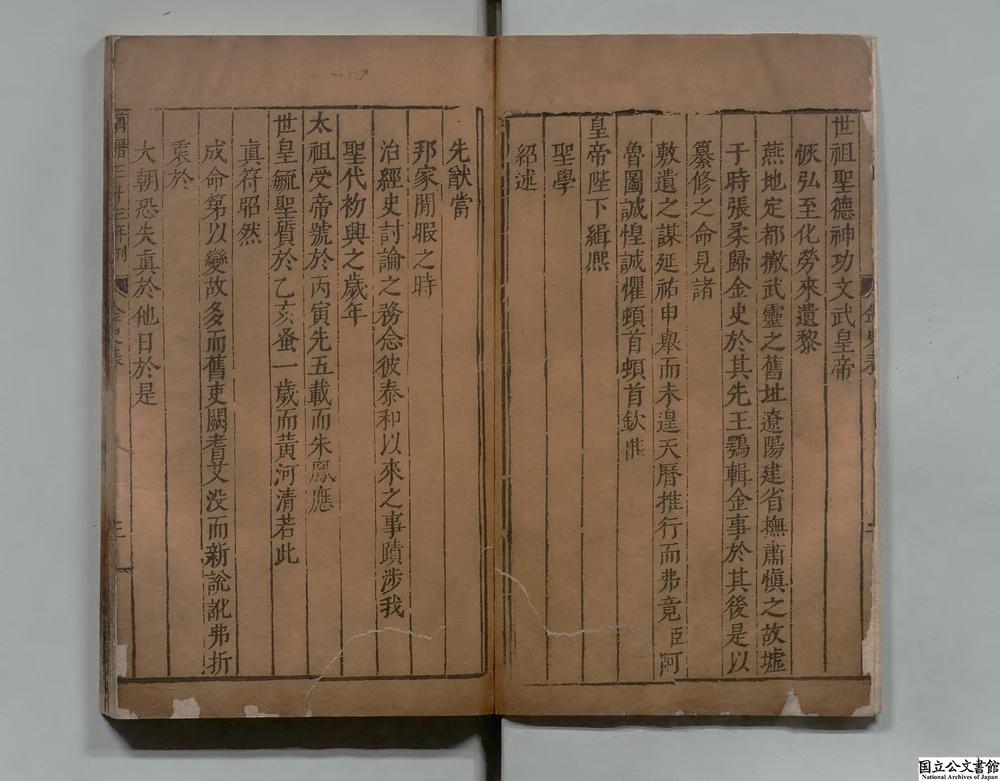 世祖聖德神功文武皇帝
恢弘至化勞來遺黎
燕地定都撤武靈之舊址遼陽建省撫肅愼之故墟
于時張柔歸金史於其先王鶚輯金事於其後是以
纂修之命見諸
敷遺之謀延祐申舉而未遑天曆推行而弗竟臣阿
魯圖誠惶誠懼頓首頓首欽惟
皇帝陛下緝熈
聖學
紹述
先猷當
邦家閒暇之時
治經史討論之務念彼泰和以來之事蹟涉我
聖代初興之歲年
太祖受帝號於丙寅先五載而朱鳳應
世皇毓聖質於乙亥蚤一歲而黃河清若此
眞符昭然
成命第以變故多而舊史闕耆艾没而新說訛弗折
衷於
大朝恐失眞於他日於是
萬曆三十三年刊
金史表
三
国立公文書館
National Archives of Japan